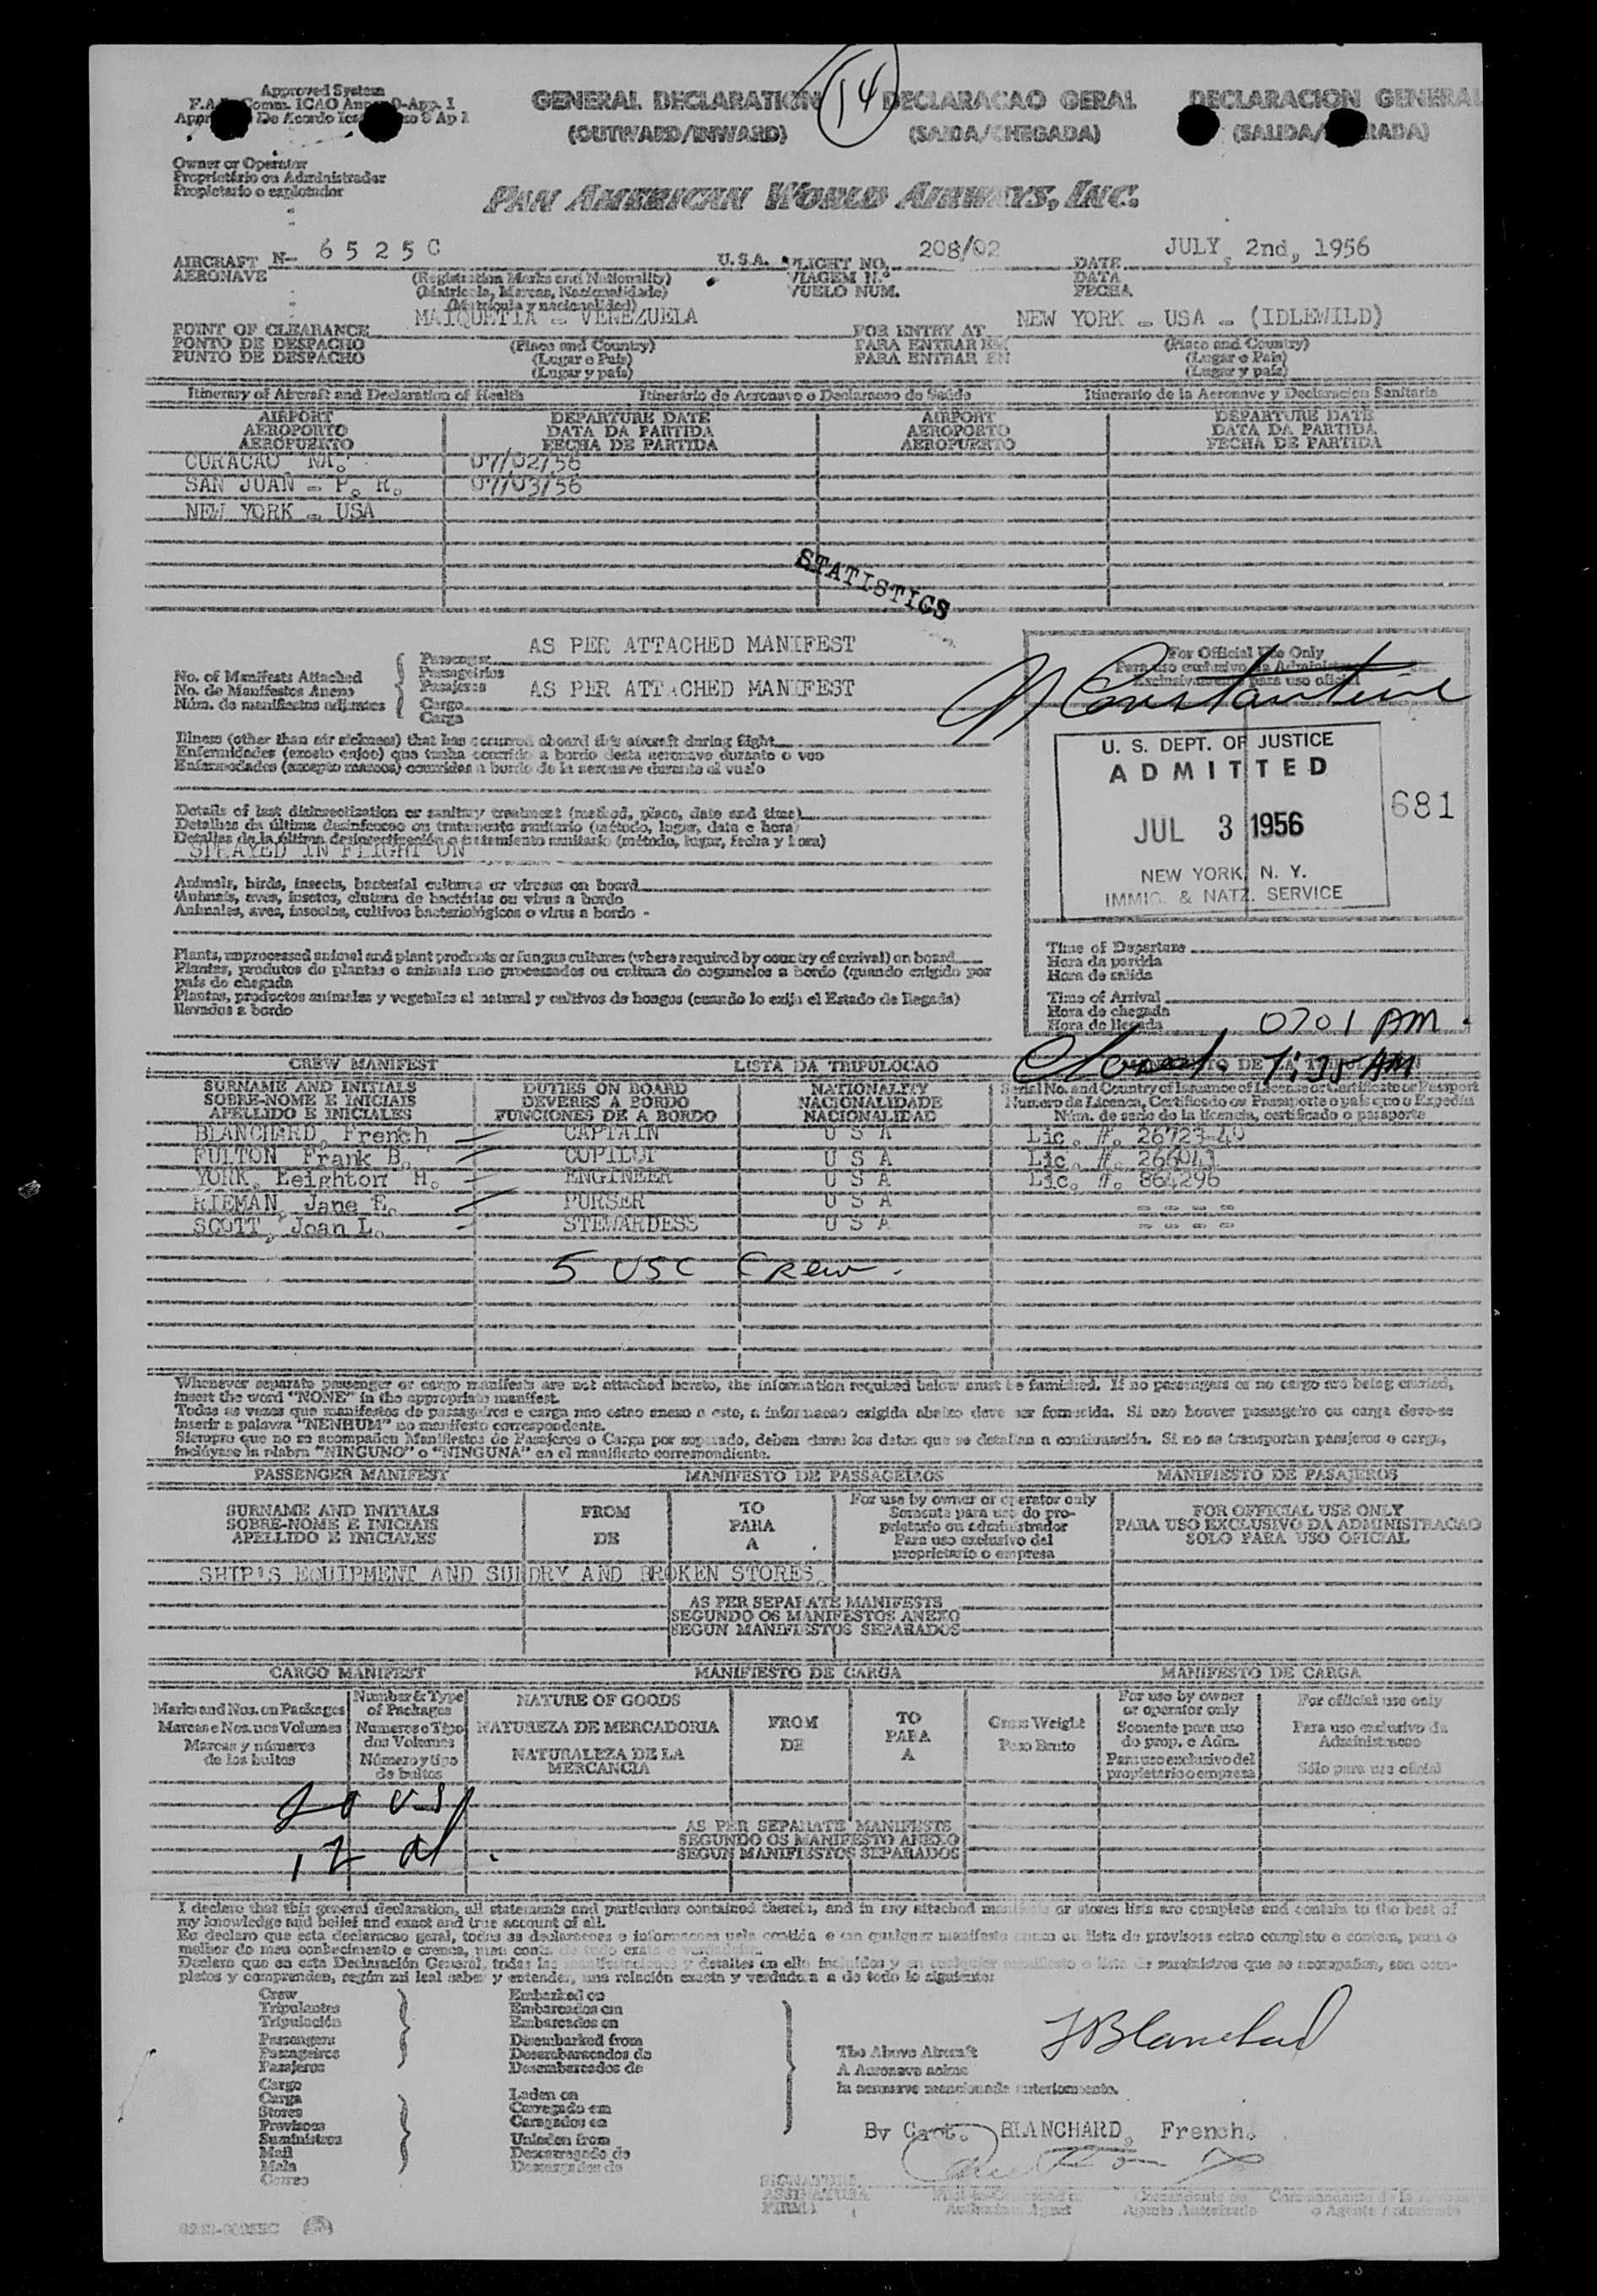 Approved System
14
GENERAL DECLARATION DECLARACAO GERAL DECLARACION GENERAL
(OUTWARD/INWARD) (SAIDA/CHEGADA) (SALIDA/
Owner or Operator
Proprietário ou Administrador
Propietario o explotador
PAN AMERICAN WORLD AIRWAYS, INC.
AIRCRAFT N- 6 5 2 5 C U.S.A. FLIGHT NO. 208/02 DATE JULY, 2nd, 1956
AERONAVE (Registration Marks and Nationality) VIAGEM N.º DATA
(Matricola, Marcas, Nacionalidade) VUELO NUM. FECHA
(Matrícula y nacionalidad)
MAIQUETIA - VENEZUELA NEW YORK - USA - (IDLEWILD)
POINT OF CLEARANCE FOR ENTRY AT
PONTO DE DESPACHO (Place and Country) PARA ENTRAR EM (Place and Country)
PUNTO DE DESPACHO (Lugar e Pais) PARA ENTRAR EN (Lugar e Pais)
(Lugar y país) (Lugar y país)
Itinerary of Aircraft and Declaration of Health Itinerário de Aeronave e Declaracao de Saúde Itinerario de la Aeronave y Declaracion Sanitaria
AIRPORT DEPARTURE DATE AIRPORT DEPARTURE DATE
AEROPORTO DATA DA PARTIDA AEROPORTO DATA DA PARTIDA
AEROPUERTO FECHA DE PARTIDA AEROPUERTO FECHA DE PARTIDA
CURACAO NA. 07/02/56
SAN JUAN - P. R. 07/03/56
NEW YORK - USA
STATISTICS
AS PER ATTACHED MANIFEST
No. of Manifests Attached
No. de Manifestos Anexo
Núm. de manifiestos adjuntos
Passenger
Passageiros
Pasajeros AS PER ATTACHED MANIFEST
Cargo
Carga
For Official Use Only
Constantine
U. S. DEPT. OF JUSTICE
ADMITTED
JUL 3 1956
681
NEW YORK, N. Y.
IMMIG. & NATZ. SERVICE
Illness (other than air sickness) that has occurred aboard this aircraft during flight
Enfermidades (exceto enjoo) que tenha ocorrido a bordo desta aeronave durante o voo
Enfermedades (excepto mareos) ocurridas a bordo de la aeronave durante el vuelo
Details of last disinsectization or sanitary treatment (method, place, date and time)
Detalhes da última desinfeccao ou tratamento sanitario (método, lugar, data e hora)
Detalles de la última desinsectización o tratamiento sanitario (método, lugar, fecha y hora)
SPRAYED IN FLIGHT ON
Animals, birds, insects, bacterial cultures or viruses on board
Animais, aves, insetos, clutura de bactérias ou virus a bordo
Animales, aves, insectos, cultivos bacteriológicos o virus a bordo -
Plants, unprocessed animal and plant products or fungus cultures (where required by country of arrival) on board
Plantas, produtos de plantas e animais nao processados ou cultura de cogumelos a bordo (quando exigido por
pais de chegada
Plantas, productos animales y vegetales al natural y cultivos de hongos (cuando lo exija el Estado de llegada)
llevados a bordo
Time of Departure
Hora da partida
Hora de salida
Time of Arrival
Hora de chegada
Hora de llegada 0701 AM
Cleared 7:35 AM
CREW MANIFEST LISTA DA TRIPULOCAO
SURNAME AND INITIALS DUTIES ON BOARD NATIONALITY Serial No. and Country of Issuance of License or Certificate or Passport
SOBRE-NOME E INICIAIS DEVERES A BORDO NACIONALIDADE Numero da Licenca, Certificado ou Passaporte o pais que o Expediu
APELLIDO E INICIALES FUNCIONES DE A BORDO NACIONALIDAD Núm. de serie de la licencia, certificado o pasaporte
BLANCHARD, French CAPTAIN U S A Lic. #. 26723-40
FULTON Frank B. COPILOT U S A Lic. #. 266041
YORK, Leighton H. ENGINEER U S A Lic. #. 864296
RIEMAN, Jane E. PURSER U S A - - - -
SCOTT, Joan L. STEWARDESS U S A - - - -
5 USC Crew.
Whenever separate passenger or cargo manifests are not attached hereto, the information required below must be furnished. If no passengers or no cargo are being carried,
insert the word "NONE" in the appropriate manifest.
Todas as vezes que manifestos de passageiros e carga nao estao anexo a este, a informacao exigida abaixo deve ser fornecida. Si nao houver passageiro ou carga deve-se
inserir a palavra "NENHUM" no manifesto correspondente.
Siempre que no se acompañen Manifiestos de Pasajeros o Carga por separado, deben darse los datos que se detallan a continuación. Si no se transportan pasajeros o carga,
inclúyase la plabra "NINGUNO" o "NINGUNA" en el manifiesto correspondiente.
PASSENGER MANIFEST MANIFESTO DE PASSAGEIROS MANIFIESTO DE PASAJEROS
SURNAME AND INITIALS FROM TO For use by owner or operator only FOR OFFICIAL USE ONLY
SOBRE-NOME E INICIAIS DE PARA Somente para uso do proprietario ou administrador PARA USO EXCLUSIVO DA ADMINISTRACAO
APELLIDO E INICIALES A Para uso exclusivo del proprietario o empresa SOLO PARA USO OFICIAL
SHIP'S EQUIPMENT AND SUNDRY AND BROKEN STORES.
AS PER SEPARATE MANIFESTS
SEGUNDO OS MANIFESTOS ANEXO
SEGUN MANIFIESTOS SEPARADOS
CARGO MANIFEST MANIFIESTO DE CARGA MANIFESTO DE CARGA
Marks and Nos. on Packages
Marcas e Nos. nos Volumes
Marcas y números
de los bultos
Number & Type
of Packages
Numeros e Tipo
dos Volumes
Número y tipo
de bultos
NATURE OF GOODS
NATUREZA DE MERCADORIA
NATURALEZA DE LA
MERCANCIA
FROM
DE
TO
PARA
A
Gross Weight
Peso Bruto
For use by owner
or operator only
Somente para uso
do prop. e Adm.
Para uso exclusivo del
propietario o empresa
For official use only
Para uso exclusivo da
Administracao
Sólo para uso oficial
AS PER SEPARATE MANIFESTS
SEGUNDO OS MANIFESTO ANEXO
SEGUN MANIFIESTOS SEPARADOS
12
I declare that this general declaration, all statements and particulars contained therein, and in any attached manifests or stores lists are complete and contain to the best of
my knowledge and belief and exact and true account of all.
Eu declaro que esta declaracao geral, todas as declaracoes e informacoes nela contida e em qualquer manifesto anexo ou lista de provisoes estao completo e contem, para o
melhor do meu conhecimento e crenca,
Declaro que en esta Declaración General, todas las manifestaciones y detalles en ella incluidos y en cualquier manifiesto o lista de suministros que se acompañan, son com-
pletos y comprenden, según mi leal saber y entender, una relación exacta y verdadera a de todo lo siguiente:
Crew
Tripulantes
Tripulación
Passengers
Passageiros
Pasajeros
Cargo
Carga
Stores
Provisoes
Suministros
Mail
Mala
Correo
Embarked on
Embarcados em
Embarcados en
Disembarked from
Desembaracados de
Desembarcados de
Laden on
Carregado em
Cargados en
Unladen from
Descarregado de
Descargados de
The Above Aircraft
A Aeronave acima
la aeronave mencionada anteriormente.
Blanchard
By Capt. BLANCHARD, French.
SIGNATURE
ASSINATURA
FIRMA